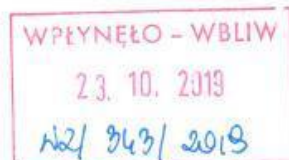 WPŁYNĘŁO – WBLIW
23. 10. 2019
343/2019